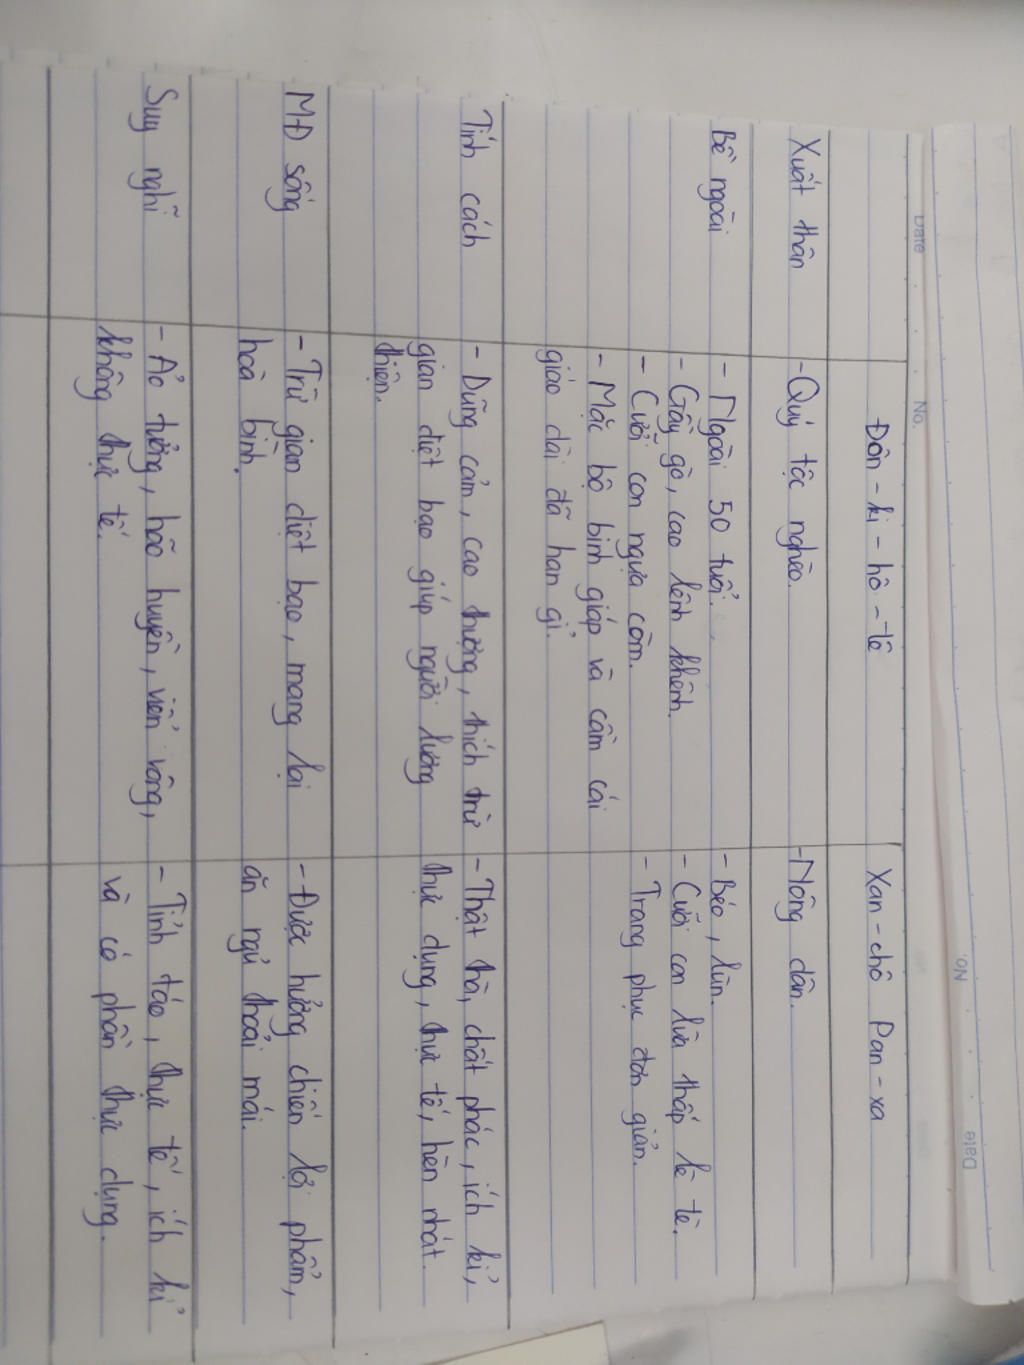 Date No.
No. Date
Đôn-ki-hô-tê Xan-chô Pan-xa
Xuất thân - Quý tộc nghèo. - Nông dân.
Bề ngoài - Ngoài 50 tuổi. - Béo, lùn.
- Gầy gò, cao lênh khênh. - Cưỡi con lừa thấp lè tè.
- Cưỡi con ngựa còm. - Trang phục đơn giản.
- Mặc bộ binh giáp và cầm cái
giáo dài đã han gỉ.
Tính cách - Dũng cảm, cao thượng, thích trừ - Thật thà, chất phác, ích kỉ,
gian diệt bạo giúp người lương thực dụng, thực tế, hèn nhát.
thiện.
MĐ sống - Trừ gian diệt bạo, mang lại - Được hưởng chiến lợi phẩm,
hoà bình. ăn ngủ thoải mái.
Suy nghĩ - Ảo tưởng, hão huyền, viển vông, - Tỉnh táo, thực tế, ích kỉ
không thực tế. và có phần thực dụng.